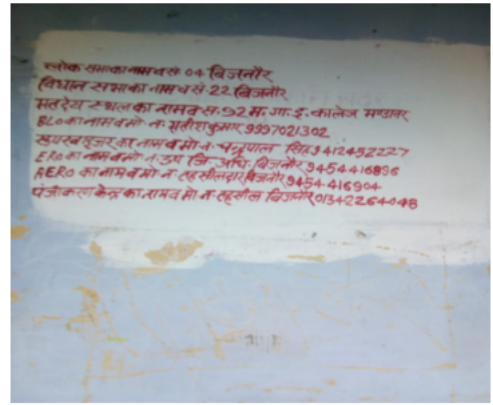 लोक सभा का नाम व सं० 04 बिजनौर
विधान सभा का नाम व सं० 22 बिजनौर
मतदेय स्थल का नाम व स० 92 म. गा. इ. कालेज मण्डावर
BLO का नाम व मो० न० सतीश कुमार 9997021302
सुपरवाइजर का नाम व मो न० चन्द्रपाल सिंह 9412452227
ERO का नाम व मो न० उप जि. अधि. बिजनौर 9454416896
AERO का नाम व मो न० तहसीलदार बिजनौर 9454416904
पंजीकरण केन्द्र का नाम व मो न० तहसील बिजनौर 01342264048